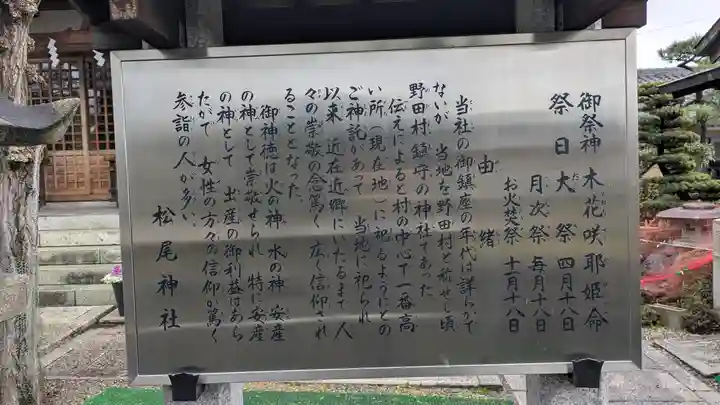 御祭神 木花咲耶姫命
祭日 大祭 四月十八日
月次祭 毎月十八日
お火焚祭 十一月十八日
由緒
当社の御鎮座の年代は詳らかで
ないが 当地を野田村と称せし頃
野田村鎮守の神社であった
伝えによると村の中心で一番高
い所(現在地)に祀るようにとの
ご神託があって 当地に祀られ
以来 近在近郷にいたるまで 人
々の崇敬の念篤く 広く信仰され
ることとなった
御神徳は火の神 水の神 安産
の神として崇敬せられ 特に安産
の神として 出産の御利益はあら
たかで 女性の方々の信仰が篤く
参詣の人が多い
松尾神社